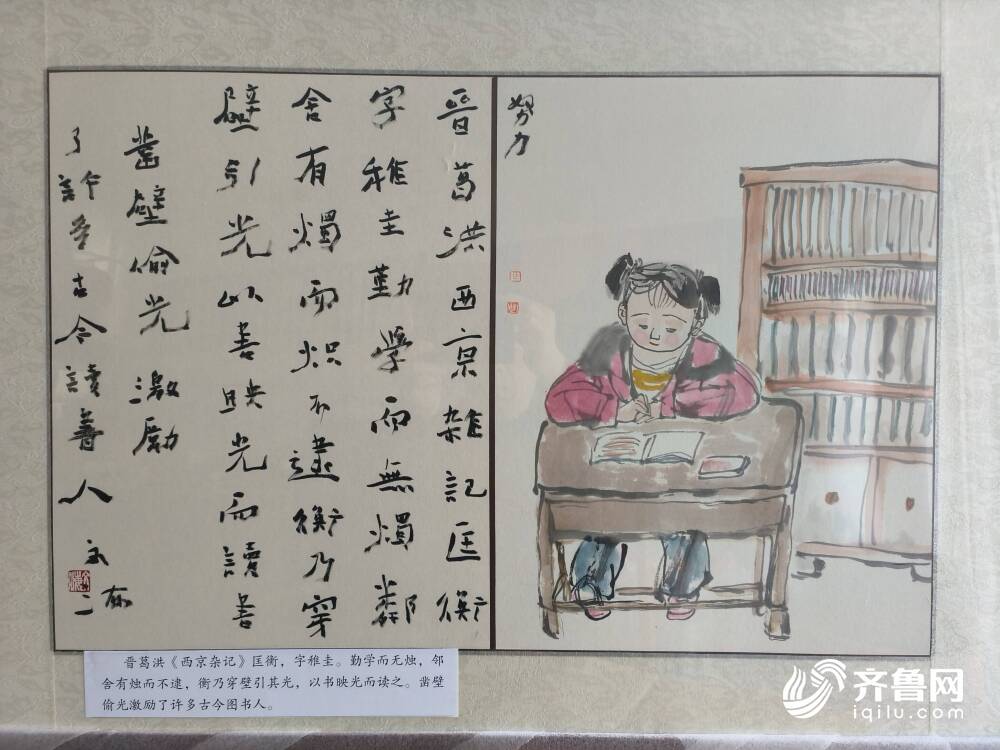 晋葛洪西京雜記匡衡
字稚圭勤學而無燭鄰
舍有燭而炽不逮衡乃穿
壁引光以書映光而讀書
凿壁偷光激励
了許多古今讀書人
努力
晋葛洪《西京杂记》匡衡，字稚圭。勤学而无烛，邻
舍有烛而不逮，衡乃穿壁引其光，以书映光而读之。凿壁
偷光激励了许多古今图书人。
齐鲁网
iqilu.com